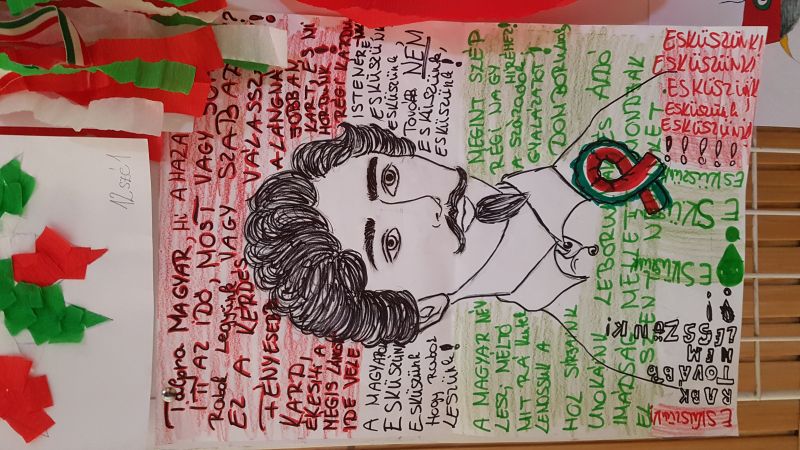 12.szé 1
Talpra MAGYAR, HI A HAZA
ITT AZ IDŐ, MOST VAGY
Rabok Legyünk, VAGY SZABAD
EZ A KÉRDÉS VÁLASSZ
FÉNYESEBB A LÁNCNÁL
KARD, JOBBAN
ÉKESÍTI A KART, ÉS MI
MÉGIS LÁNCOT HORDUNK!
IDE VELE RÉGI
A MAGYAROK ISTENÉRE
ESKÜSZÜNK ESKÜSZÜNK
ESKÜSZÜNK ESKÜSZÜNK,
HOGY RABOK TOVÁBB NEM
LESZÜNK! ESKÜSZÜNK, ESKÜSZÜNK!
A MAGYAR NÉV MEGINT SZÉP
LESZ, MÉLTÓ RÉGI NAGY
MIT RÁ KENTEK HIRÉHEZ!
LEMOSSUK A A SZÁZADOK GYALÁZATOT!
HOL SÍRJAINK DOMBORULNAK
UNOKÁINK LEBORULNAK ÉS ÁLDÓ
IMÁDSÁG MELLETT MONDJÁK
EL SZENT
ESKÜSZÜNK!
ESKÜSZÜNK!
ESKÜSZÜNK
ESKÜSZÜNK!
ESKÜSZÜNK!
ESKÜSZÜNK
ESKÜSZÜNK
ESKÜSZÜNK
RABOK
TOVÁBB
NEM
LESZÜNK!